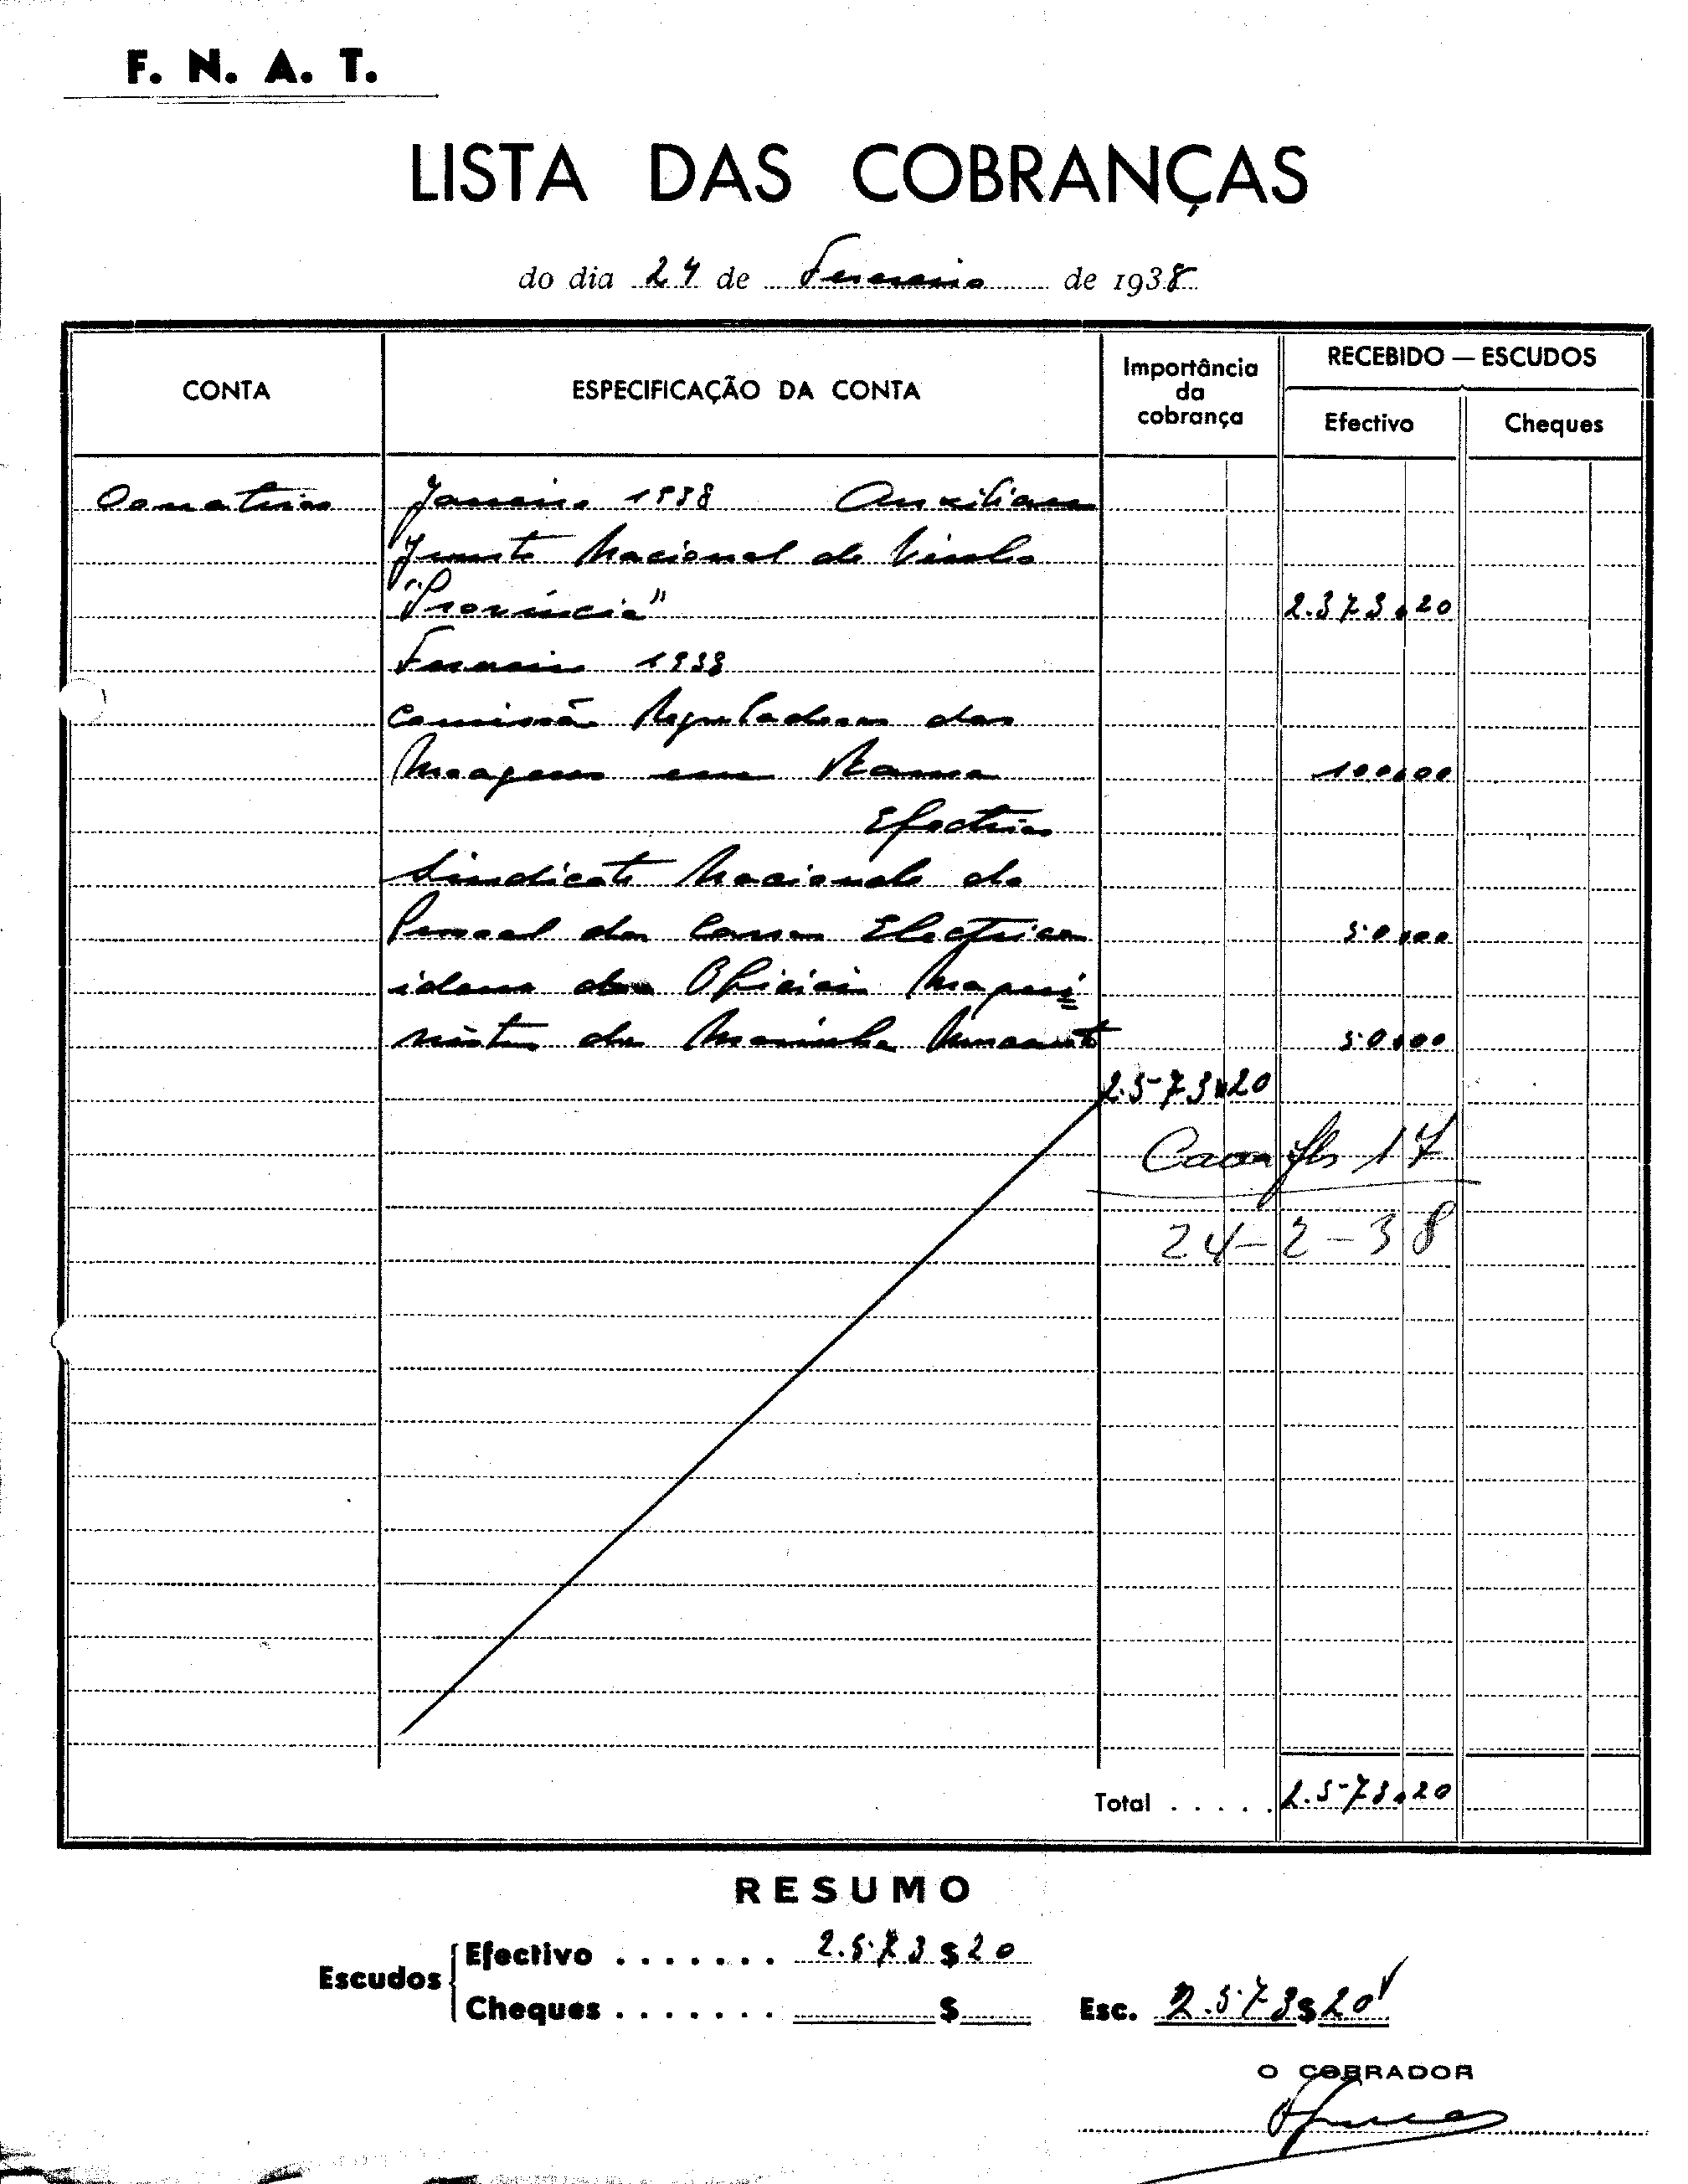 F. N. A. T.
LISTA DAS COBRANÇAS
do dia 24 de Fevereiro de 1938
CONTA
ESPECIFICAÇÃO DA CONTA
Importância
da
cobrança
RECEBIDO — ESCUDOS
Efectivo
Cheques
Janeiro 1938 Auxiliares
Junta Nacional do Vinho
"Província" 2.373.20
Fevereiro 1938
Comissão Reguladora das
Moagens em Rama 100.00
Efectivos
Sindicato Nacional do
Pessoal dos Carros Electricos 50.00
idem dos Oficiais Maqui=
nistas da Marinha Mercante 50.00
2.573.20
Caixa fls 17
24-2-38
Total ..... 2.573.20
RESUMO
Escudos
Efectivo ....... 2.573 $ 20
Cheques ....... $
Esc. 2.573 $ 20
O COBRADOR